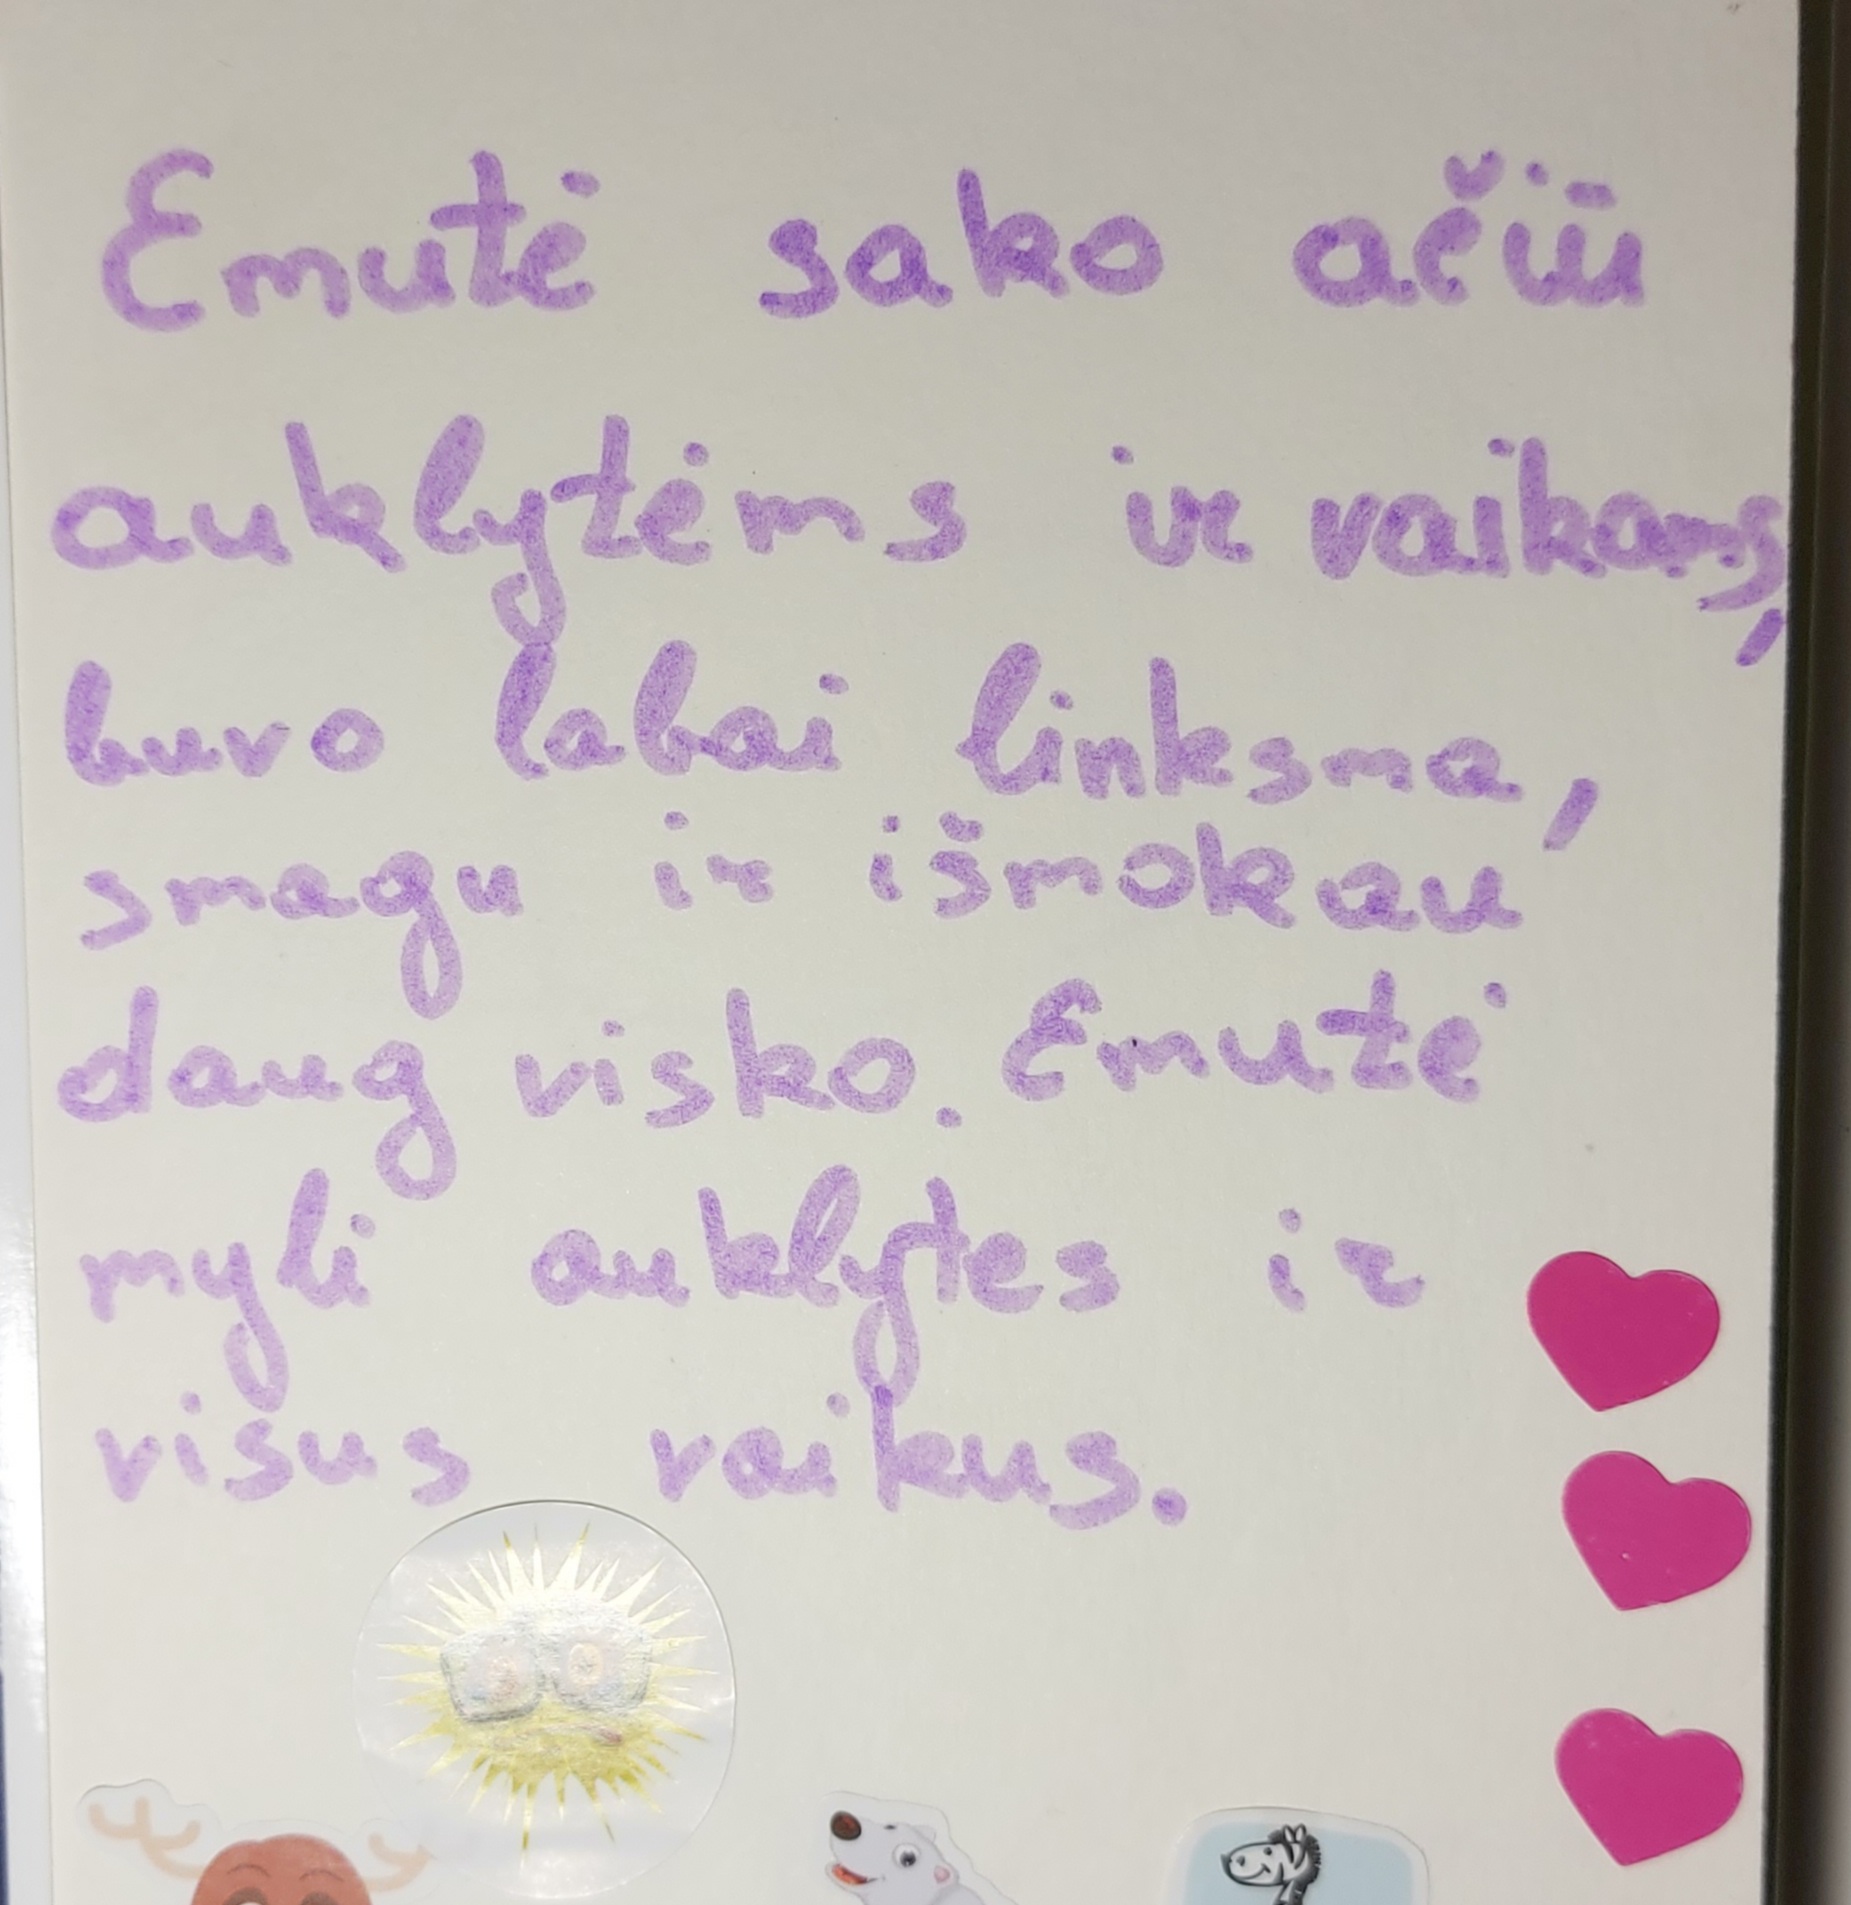 Emutė sako ačiū
auklytėms ir vaikams,
buvo labai linksma,
smagu ir išmokau
daug visko. Emutė
myli auklytes ir
visus vaikus.